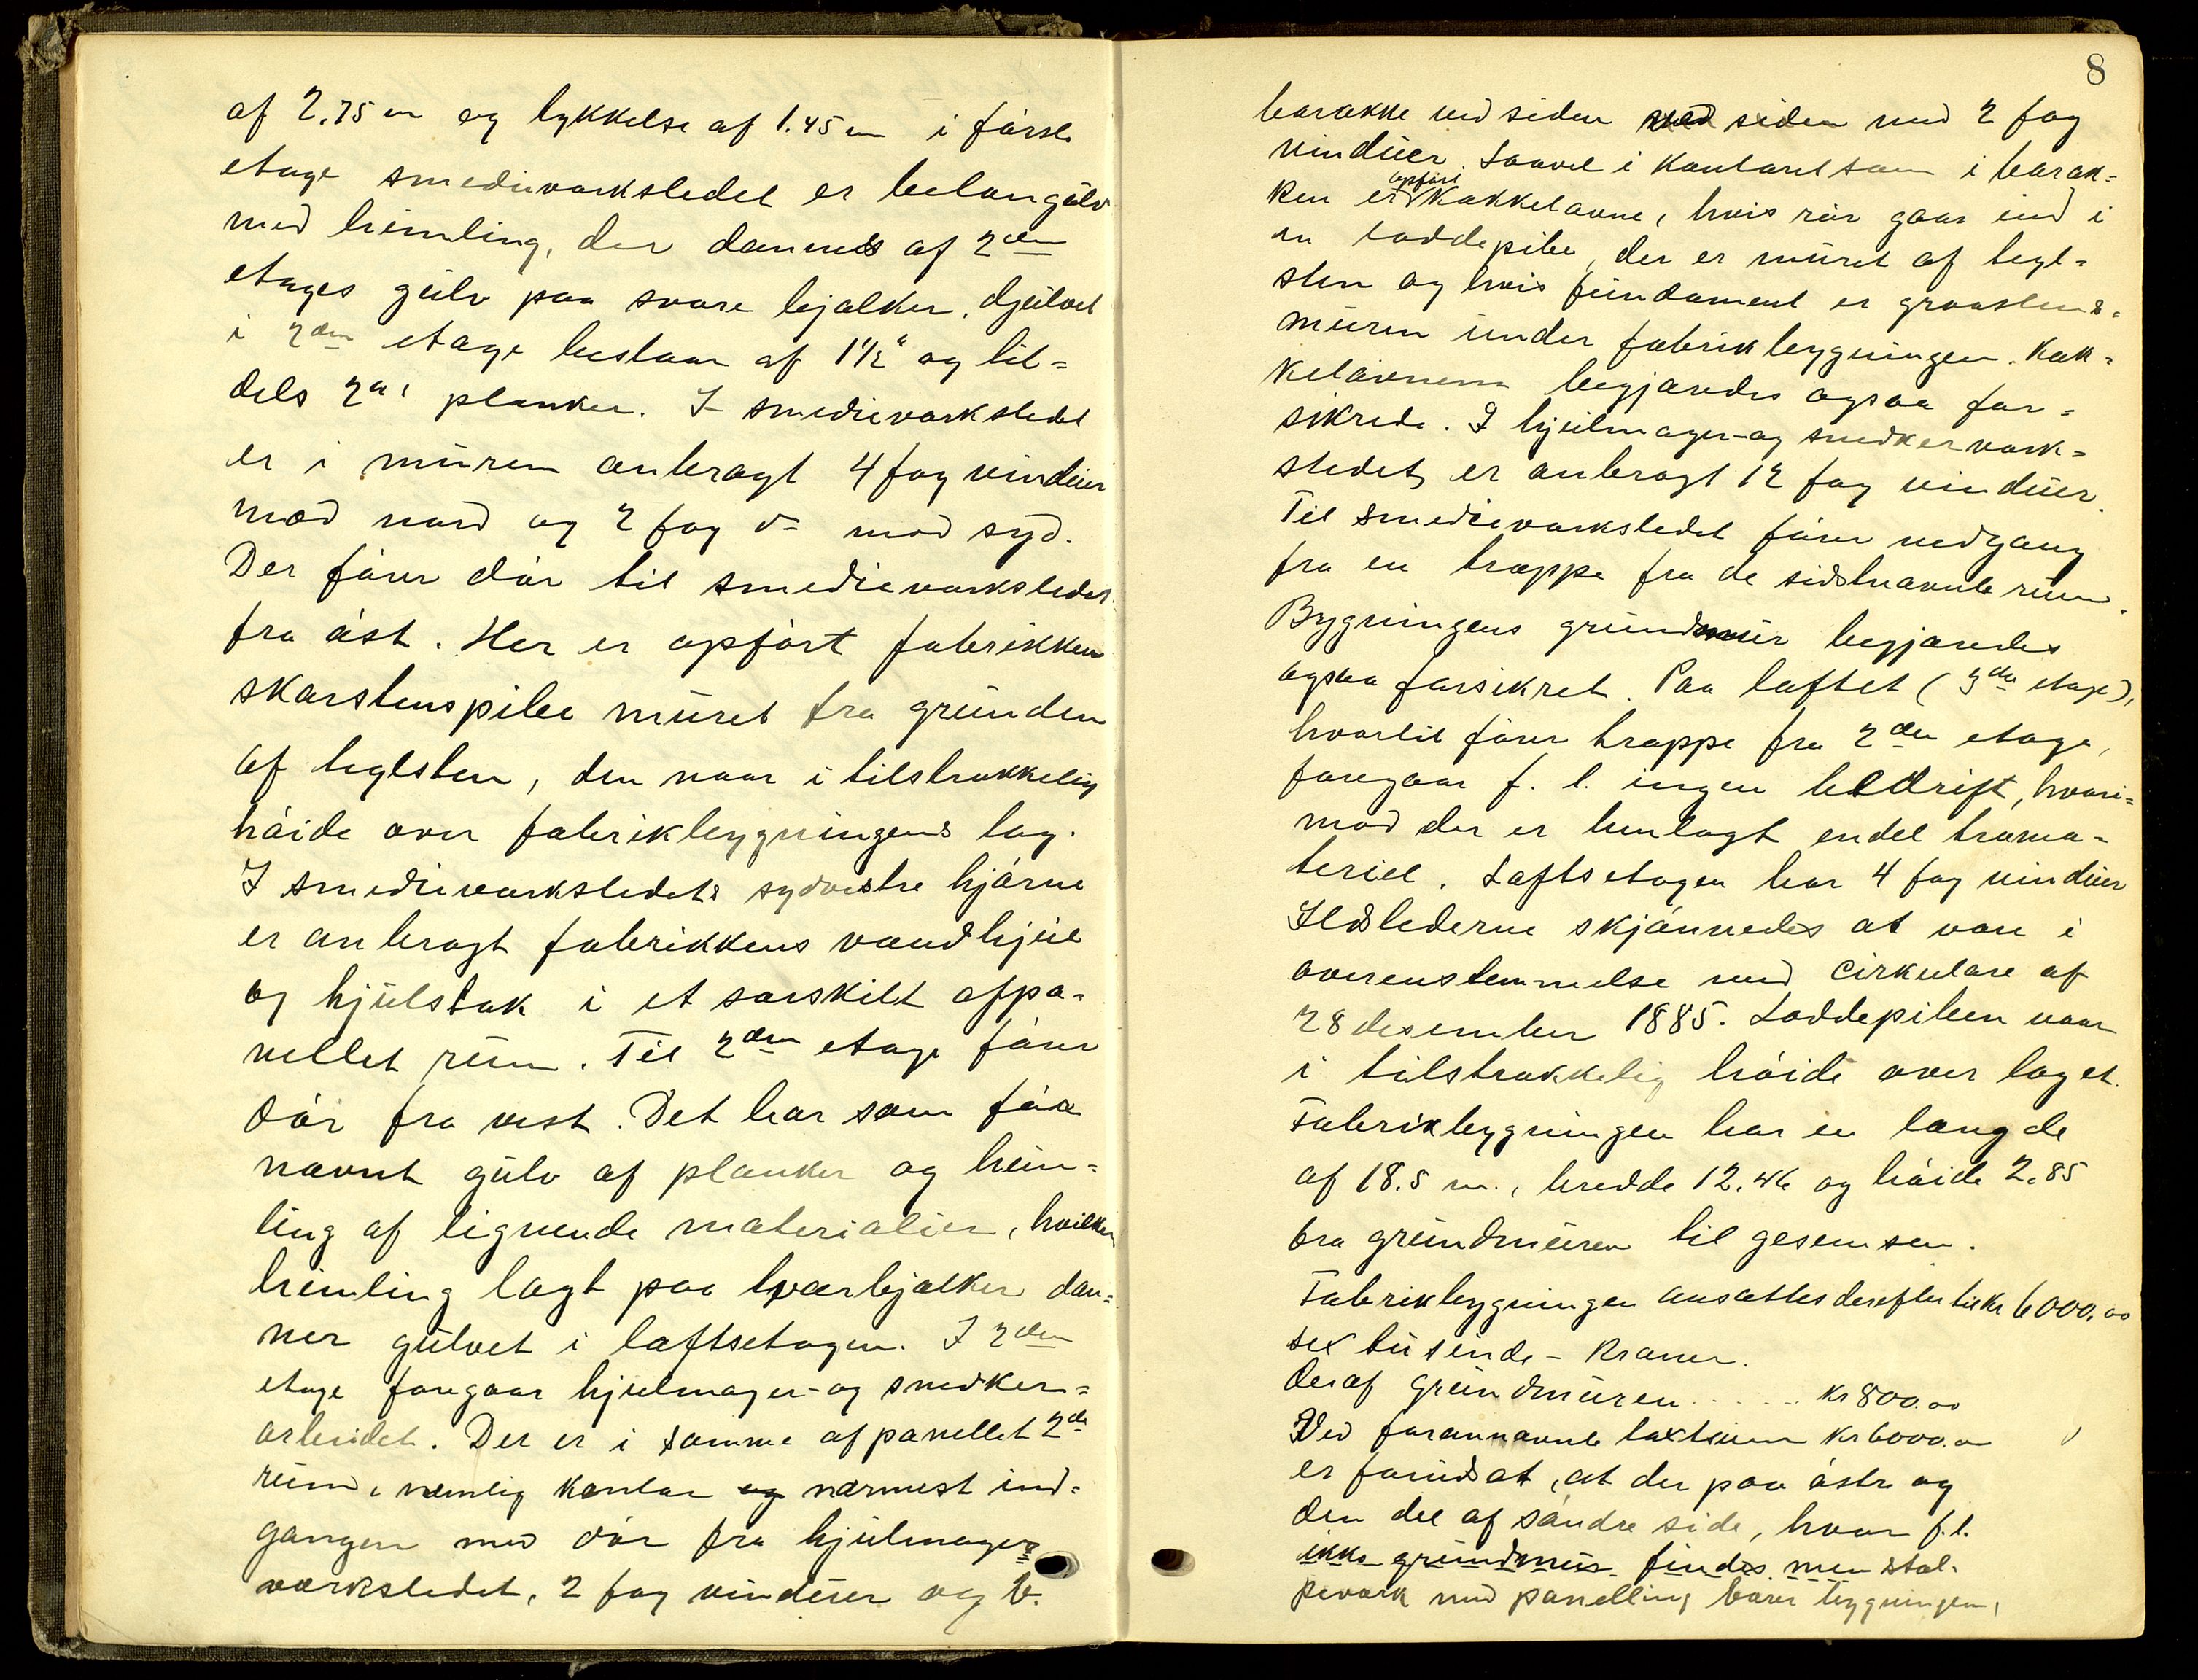 af 2.75 m og tykkelse af 1.45 m i første
etage smedieværkstedet er betongulv
med himling, der dannes af 2den
etages gulv paa svære bjælker. Gulvet
i 2den etage bestaar af 1½" og til=
dels 2" planker. I smedieværkstedet
er i muren anbragt 4 fag vinduer
mod nord og 2 fag do mod syd.
Der fører dør til smedieværkstedet
fra øst. Her er opført fabrikken
skorstenspibe muret fra grunden
af teglsten, den naar i tilstrækkelig
høide over fabrikbygningens tag.
I smedieværkstedets sydvestre hjørne
er anbragt fabrikkens vandhjul
og hjulstok i et særskilt afpa=
nellet rum. Til 2den etage fører
dør fra vest. Det har som før
nævnt gulv af planker og him=
ling af lignende materialier, hvilken
himling lagt paa tværbjælker dan=
ner gulvet i loftsetagen. I 2den
etage foregaar hjulmager- og snedker=
arbeidet. Der er i samme afpanellet 2de
rum, nemlig kontor og nærmest ind=
gangen med dør fra hjulmager=
værkstedet, 2 fag vinduer og b.
8
barakke ved siden ved siden med 2 fag
vinduer. Saavel i kontoret som i barak=
ken er opført kakkelovne, hvis rør gaar ind i
en loddepibe, der er muret af tegl=
sten og hvis fundament er graastens=
muren under fabrikbygningen. Kak=
kelovnene begjæredes ogsaa for=
sikrede. I hjulmager- og snedkerværk=
stedet er anbragt 12 fag vinduer.
Til smedieværkstedet fører nedgang
fra en trappe fra de sidstnævnte rum.
Bygningens grundmur begjæredes
ogsaa forsikret. Paa loftet (3die etage),
hvortil fører trappe fra 2den etage,
foregaar f. t. ingen bedrift, hvori=
mod der er henlagt endel træma=
teriel. Loftsetagen har 4 fag vinduer
Ildstederne skjønnedes at være i
overenstemmelse med cirkulære af
28 desember 1885. Loddepiben naar
i tilstrækkelig høide over taget.
Fabrikbygningen har en længde
af 18.5 m., bredde 12.46 og høide 2.85
fra grundmuren til gesemsen.
Fabrikbygningen ansættes derefter til kr 6000.00
sex tusinde - kroner.
Deraf grundmuren . . . . . kr 800.00
Ved forannævnte taxtsum kr 6000.00
er forudsat, at der paa østre og
den del af søndre side, hvor f. t.
ikke grundmur findes men stol=
peværk med panelling bærer bygningen,